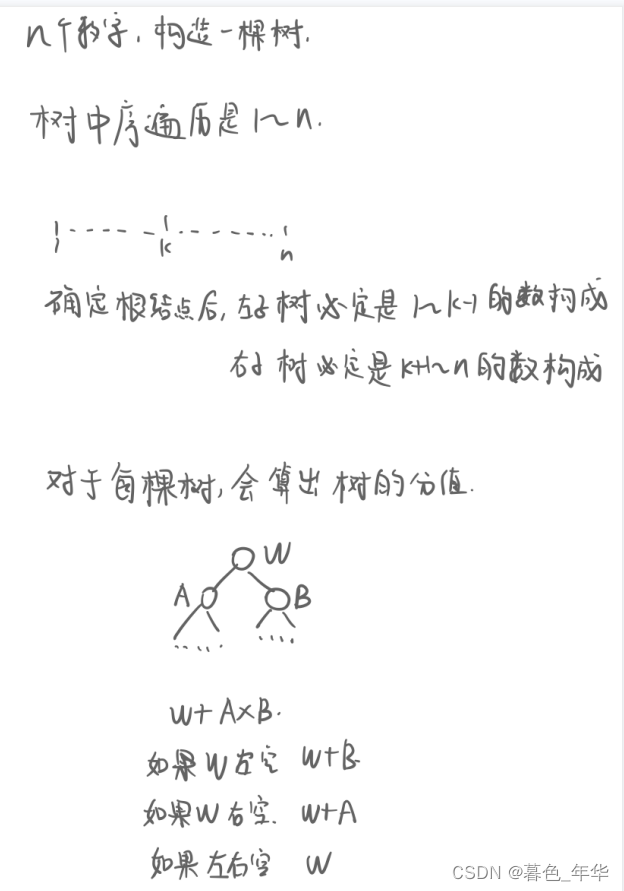 n个数字,构造一棵树.
树中序遍历是1~n.
1 k n
确定根结点后,左子树必定是1~k-1的数构成
右子树必定是k+1~n的数构成
对于每棵树,会算出树的分值.
W
A B
W+A×B.
如果W左空 W+B
如果W右空. W+A
如果左右空 W
CSDN @暮色_年华